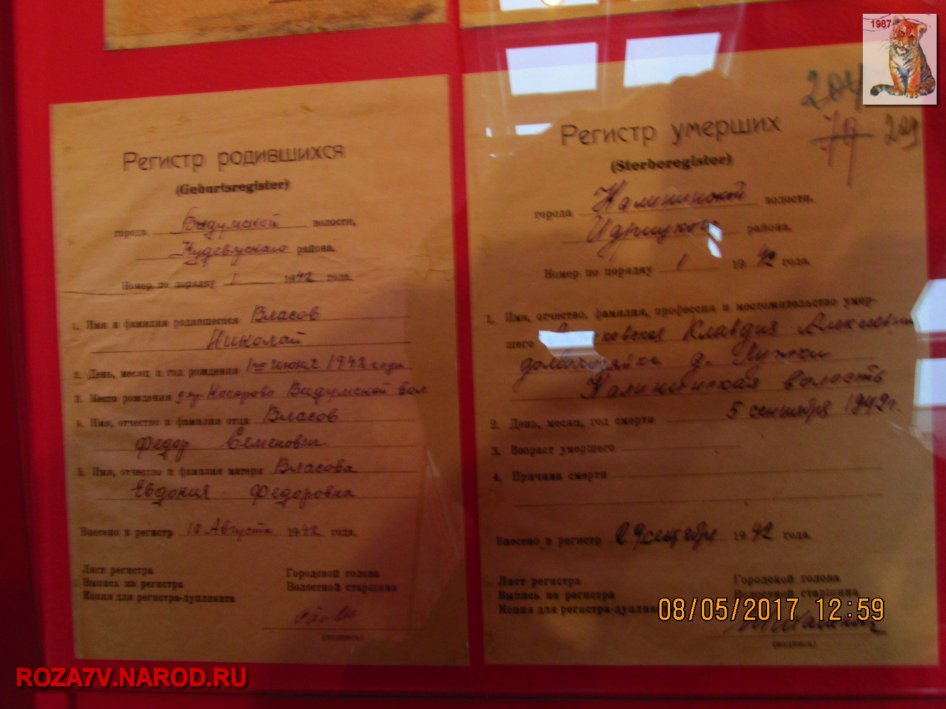 Регистр родившихся
(Geburtsregister)
города Видумской волости,
района.
Номер по порядку 1 1942 года.
1. Имя и фамилия родившегося Власов
Николай
2. День, месяц и год рождения 1го июня 1942 года
3. Место рождения д. Носорово Видумской вол
4. Имя, отчество и фамилия отца Власов
Федор Семенович
5. Имя, отчество и фамилия матери Власова
Евдокия Федоровна
Внесено в регистр 10 Августа 1942 года.
Лист регистра
Выпись из регистра
Копия для регистра-дупликата
Городской голова
Волостной старшина
(подпись)
204
79 209
Регистр умерших
(Sterberegister)
города Калининской волости,
Идрицкого района.
Номер по порядку 1 1942 года.
1. Имя, отчество, фамилия, профессия и местожительство умер-
шего Клавдия
домохозяйка д.
Калининская волость
2. День, месяц, год смерти 5 сентября 1942 г.
3. Возраст умершего
4. Причина смерти
Внесено в регистр 29 сентября 1942 года.
Лист регистра
Выпись из регистра
Копия для регистра-дупликата
Городской голова
Волостной старшина
(подпись)
08/05/2017 12:59
1987
ROZA7V.NAROD.RU